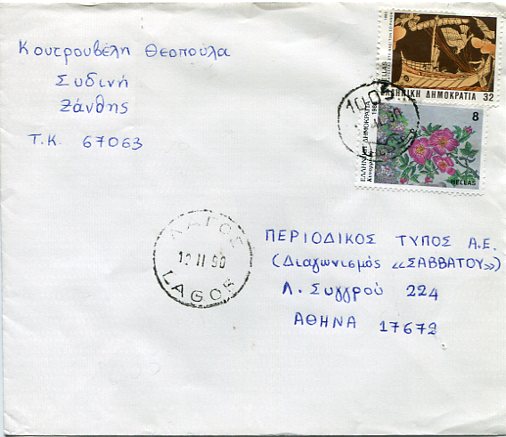 Κουτρουβέλη Θεοπούλα
Συδινή
Ξάνθης
Τ.Κ. 67063
ΕΛΛΗΝΙΚΗ ΔΗΜΟΚΡΑΤΙΑ 32
8
ΕΛΛΗΝΙΚΗ ΔΗΜΟΚΡΑΤΙΑ
HELLAS
ΛΑΓΟΣ
12 II 90
LAGOS
ΠΕΡΙΟΔΙΚΟΣ ΤΥΠΟΣ Α.Ε.
(Διαγωνισμός «ΣΑΒΒΑΤΟΥ»)
Λ. Συγγρού 224
ΑΘΗΝΑ 17672